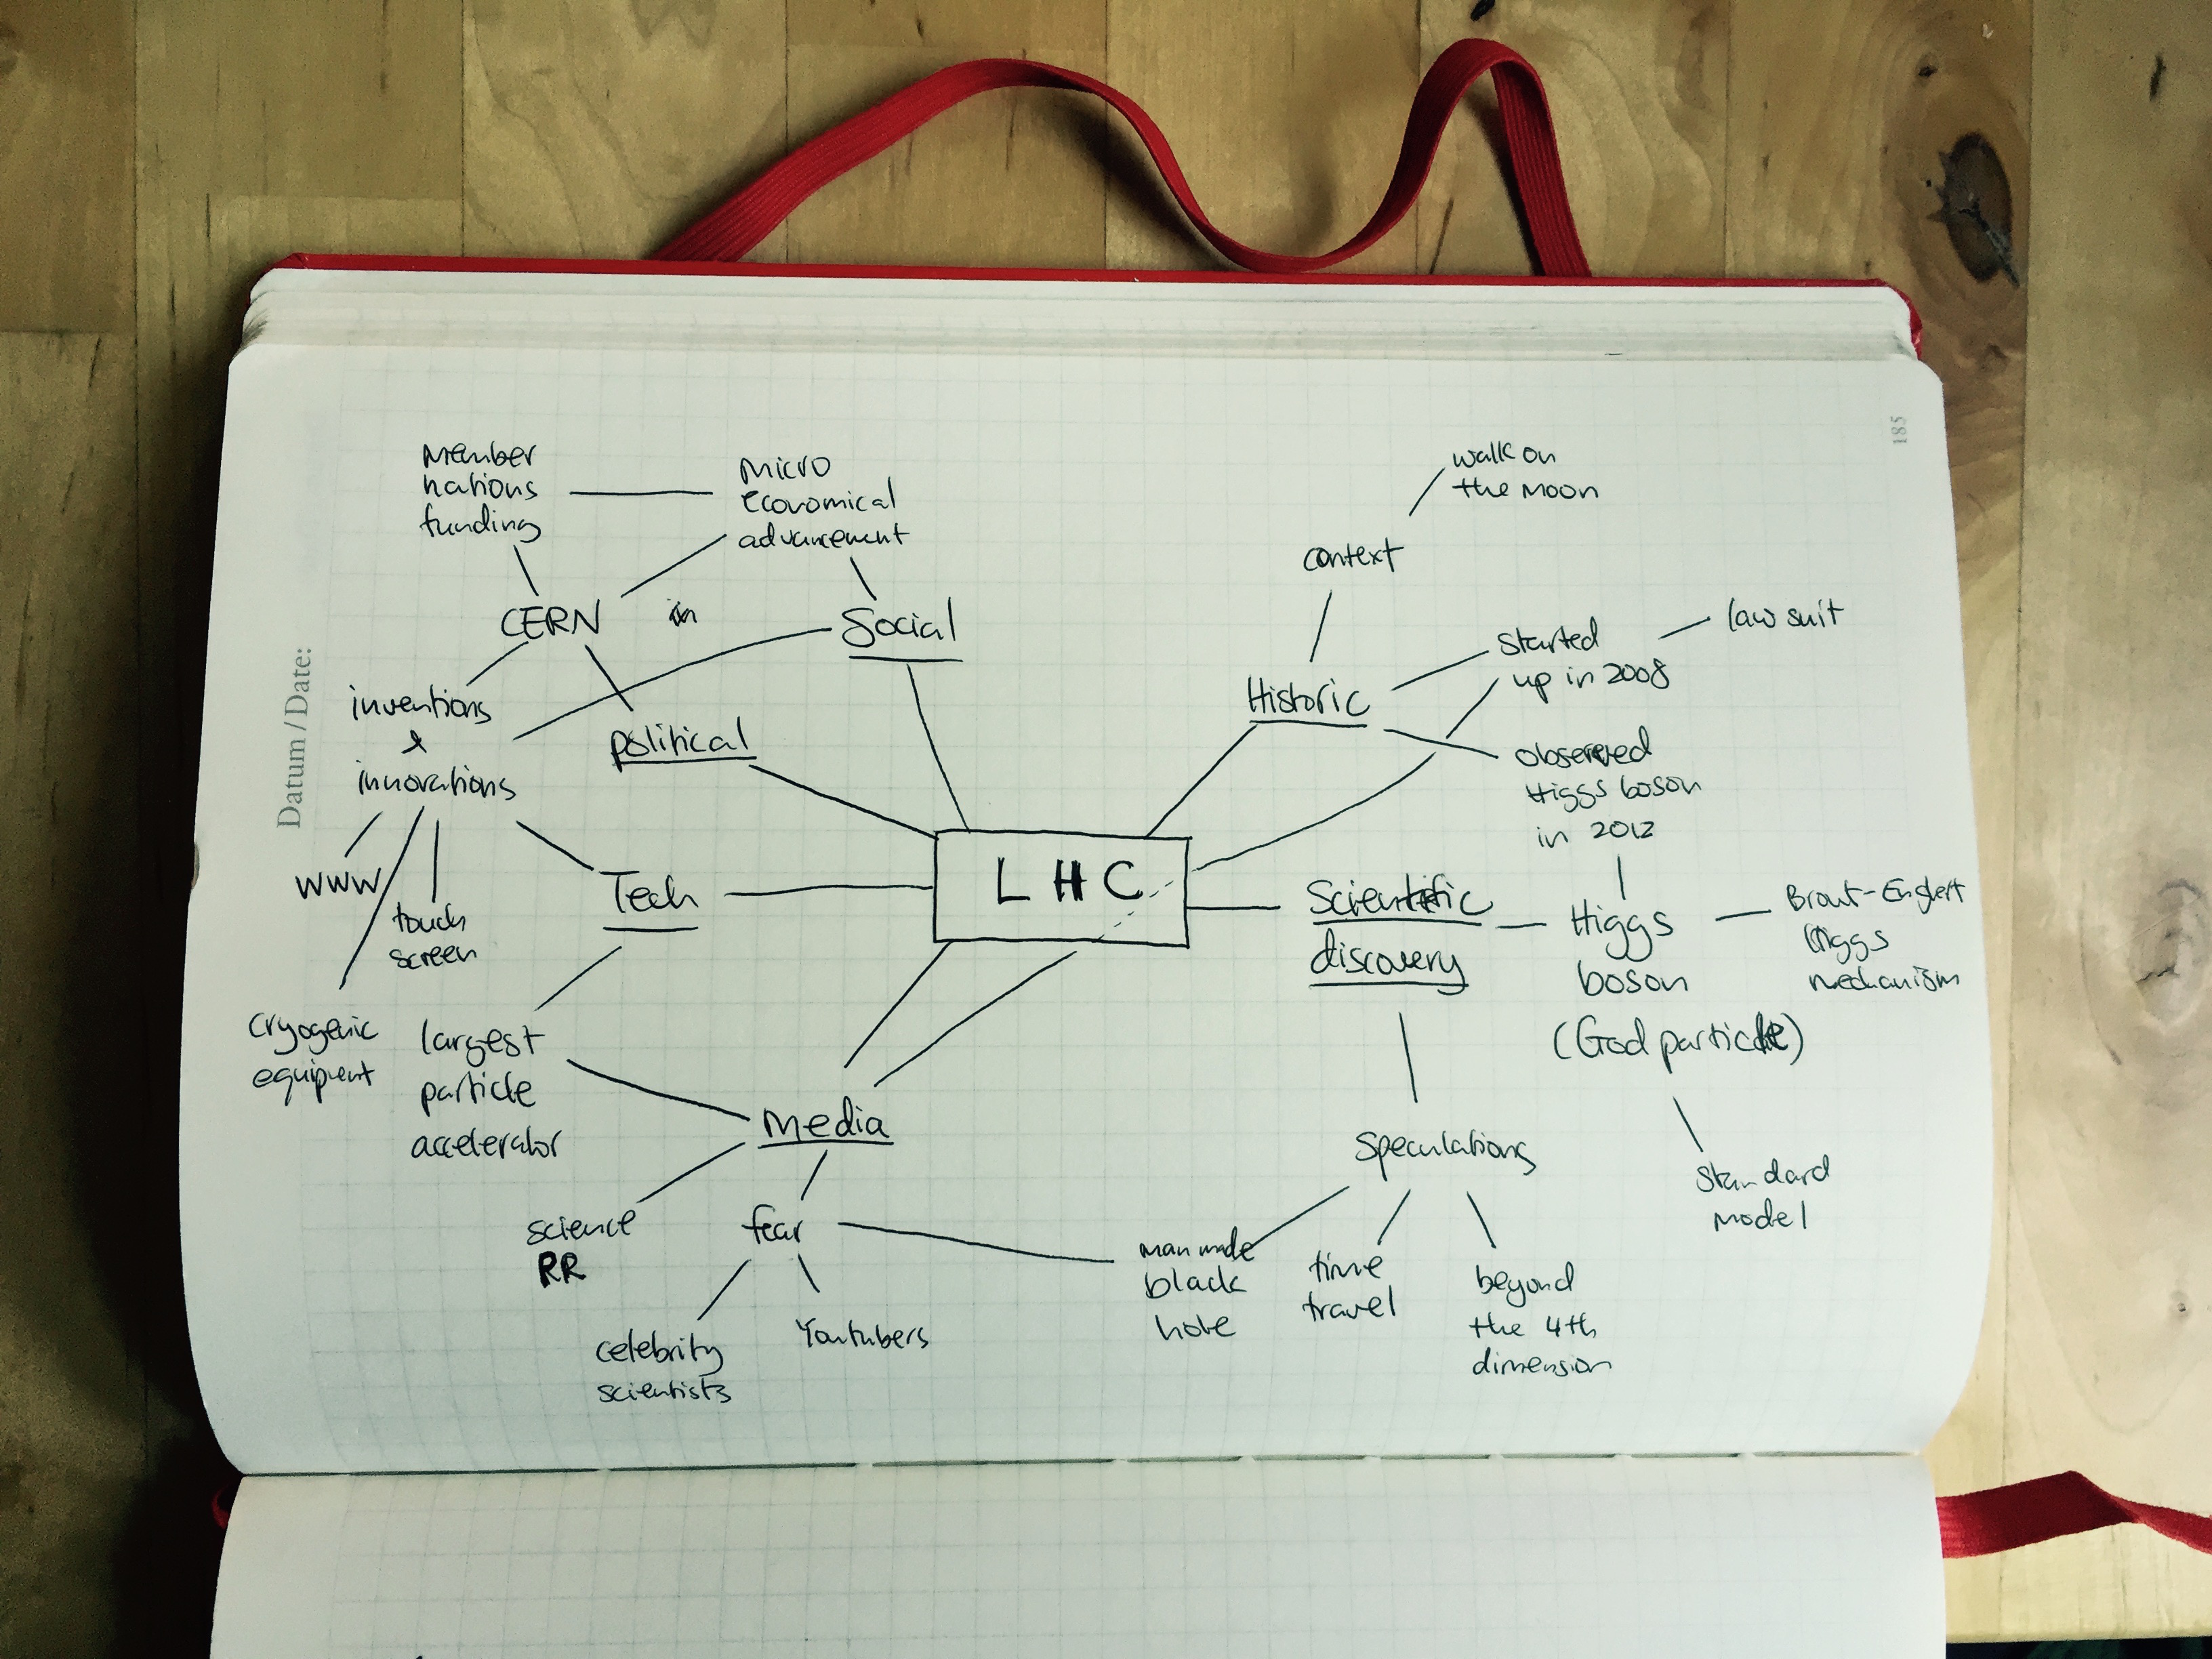 185
Datum / Date:
Member
nations
funding
micro
economical
advancement
CERN
in
Social
inventions
&
innovations
political
www
touch
screen
Tech
cryogenic
equipment
largest
particle
accelerator
LHC
media
science
RR
fear
celebrity
scientists
Youtubers
walk on
the moon
context
Historic
started
up in 2008
law suit
observed
Higgs boson
in 2012
Scientific
discovery
Higgs
boson
(God particle)
Brout-Englert
Higgs
mechanism
standard
model
speculations
man made
black
hole
time
travel
beyond
the 4th
dimension